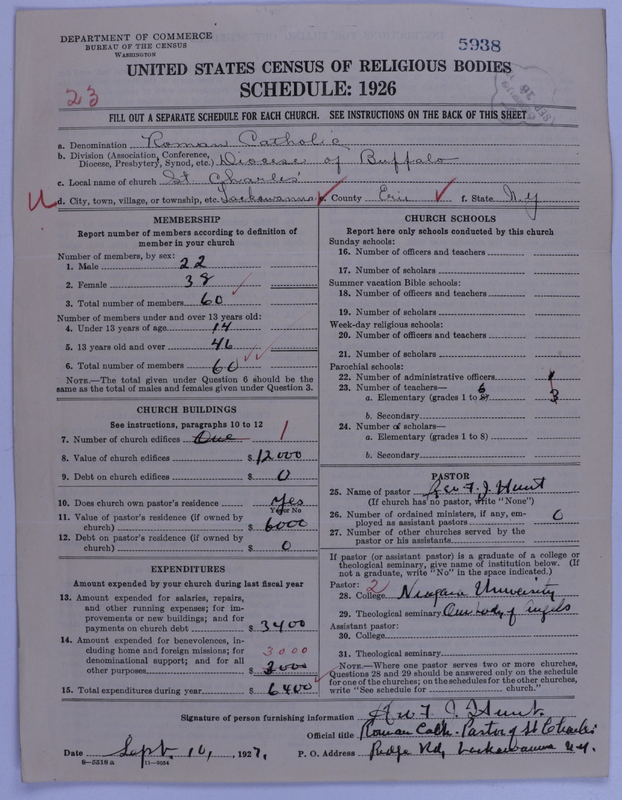 DEPARTMENT OF COMMERCE
BUREAU OF THE CENSUS
WASHINGTON
5938
23
UNITED STATES CENSUS OF RELIGIOUS BODIES
SCHEDULE: 1926
FILL OUT A SEPARATE SCHEDULE FOR EACH CHURCH. SEE INSTRUCTIONS ON THE BACK OF THIS SHEET
a. Denomination Roman Catholic
b. Division (Association, Conference,
Diocese, Presbytery, Synod, etc.) Diocese of Buffalo
c. Local name of church St. Charles'
d. City, town, village, or township, etc. Lackawanna e. County Erie f. State N.Y
MEMBERSHIP
Report number of members according to definition of
member in your church
Number of members, by sex:
1. Male 22
2. Female 38
3. Total number of members 60
Number of members under and over 13 years old:
4. Under 13 years of age 14
5. 13 years old and over 46
6. Total number of members 60
NOTE.—The total given under Question 6 should be
same as the total of males and females given under Question 3.
CHURCH BUILDINGS
See instructions, paragraphs 10 to 12
7. Number of church edifices One 1
8. Value of church edifices $ 12000
9. Debt on church edifices $ 0
10. Does church own pastor's residence Yes
Yes or No
11. Value of pastor's residence (if owned by
church) $ 6000
12. Debt on pastor's residence (if owned by
church) $ 0
EXPENDITURES
Amount expended by your church during last fiscal year
13. Amount expended for salaries, repairs,
and other running expenses; for im-
provements or new buildings; and for
payments on church debt $ 3400
14. Amount expended for benevolences, in-
cluding home and foreign missions; for
denominational support; and for all 3000
other purposes $ 2000
15. Total expenditures during year $ 6400
CHURCH SCHOOLS
Report here only schools conducted by this church
Sunday schools:
16. Number of officers and teachers
17. Number of scholars
Summer vacation Bible schools:
18. Number of officers and teachers
19. Number of scholars
Week-day religious schools:
20. Number of officers and teachers
21. Number of scholars
Parochial schools:
22. Number of administrative officers 1
23. Number of teachers— 6
a. Elementary (grades 1 to 8) 3
b. Secondary
24. Number of scholars—
a. Elementary (grades 1 to 8)
b. Secondary
PASTOR
25. Name of pastor Rev F. J. Hunt
(If church has no pastor, write "None")
26. Number of ordained ministers, if any, em-
ployed as assistant pastors 0
27. Number of other churches served by the
pastor or his assistants
If pastor (or assistant pastor) is a graduate of a college or
theological seminary, give name of institution below. (If
not a graduate, write "No" in the space indicated.)
Pastor: 2
28. College Niagara University
29. Theological seminary Our Lady of Angels
Assistant pastor:
30. College
31. Theological seminary
NOTE.—Where one pastor serves two or more churches,
Questions 28 and 29 should be answered only on the schedule
for one of the churches; on the schedules for the other churches,
write "See schedule for church."
Signature of person furnishing information Rev F. J. Hunt
Official title Roman Cath. Pastor of St Charles'
Date Sept. 10, 1927. P. O. Address Ridge Rd, Lackawanna N.Y.
8—5518a 11—9084